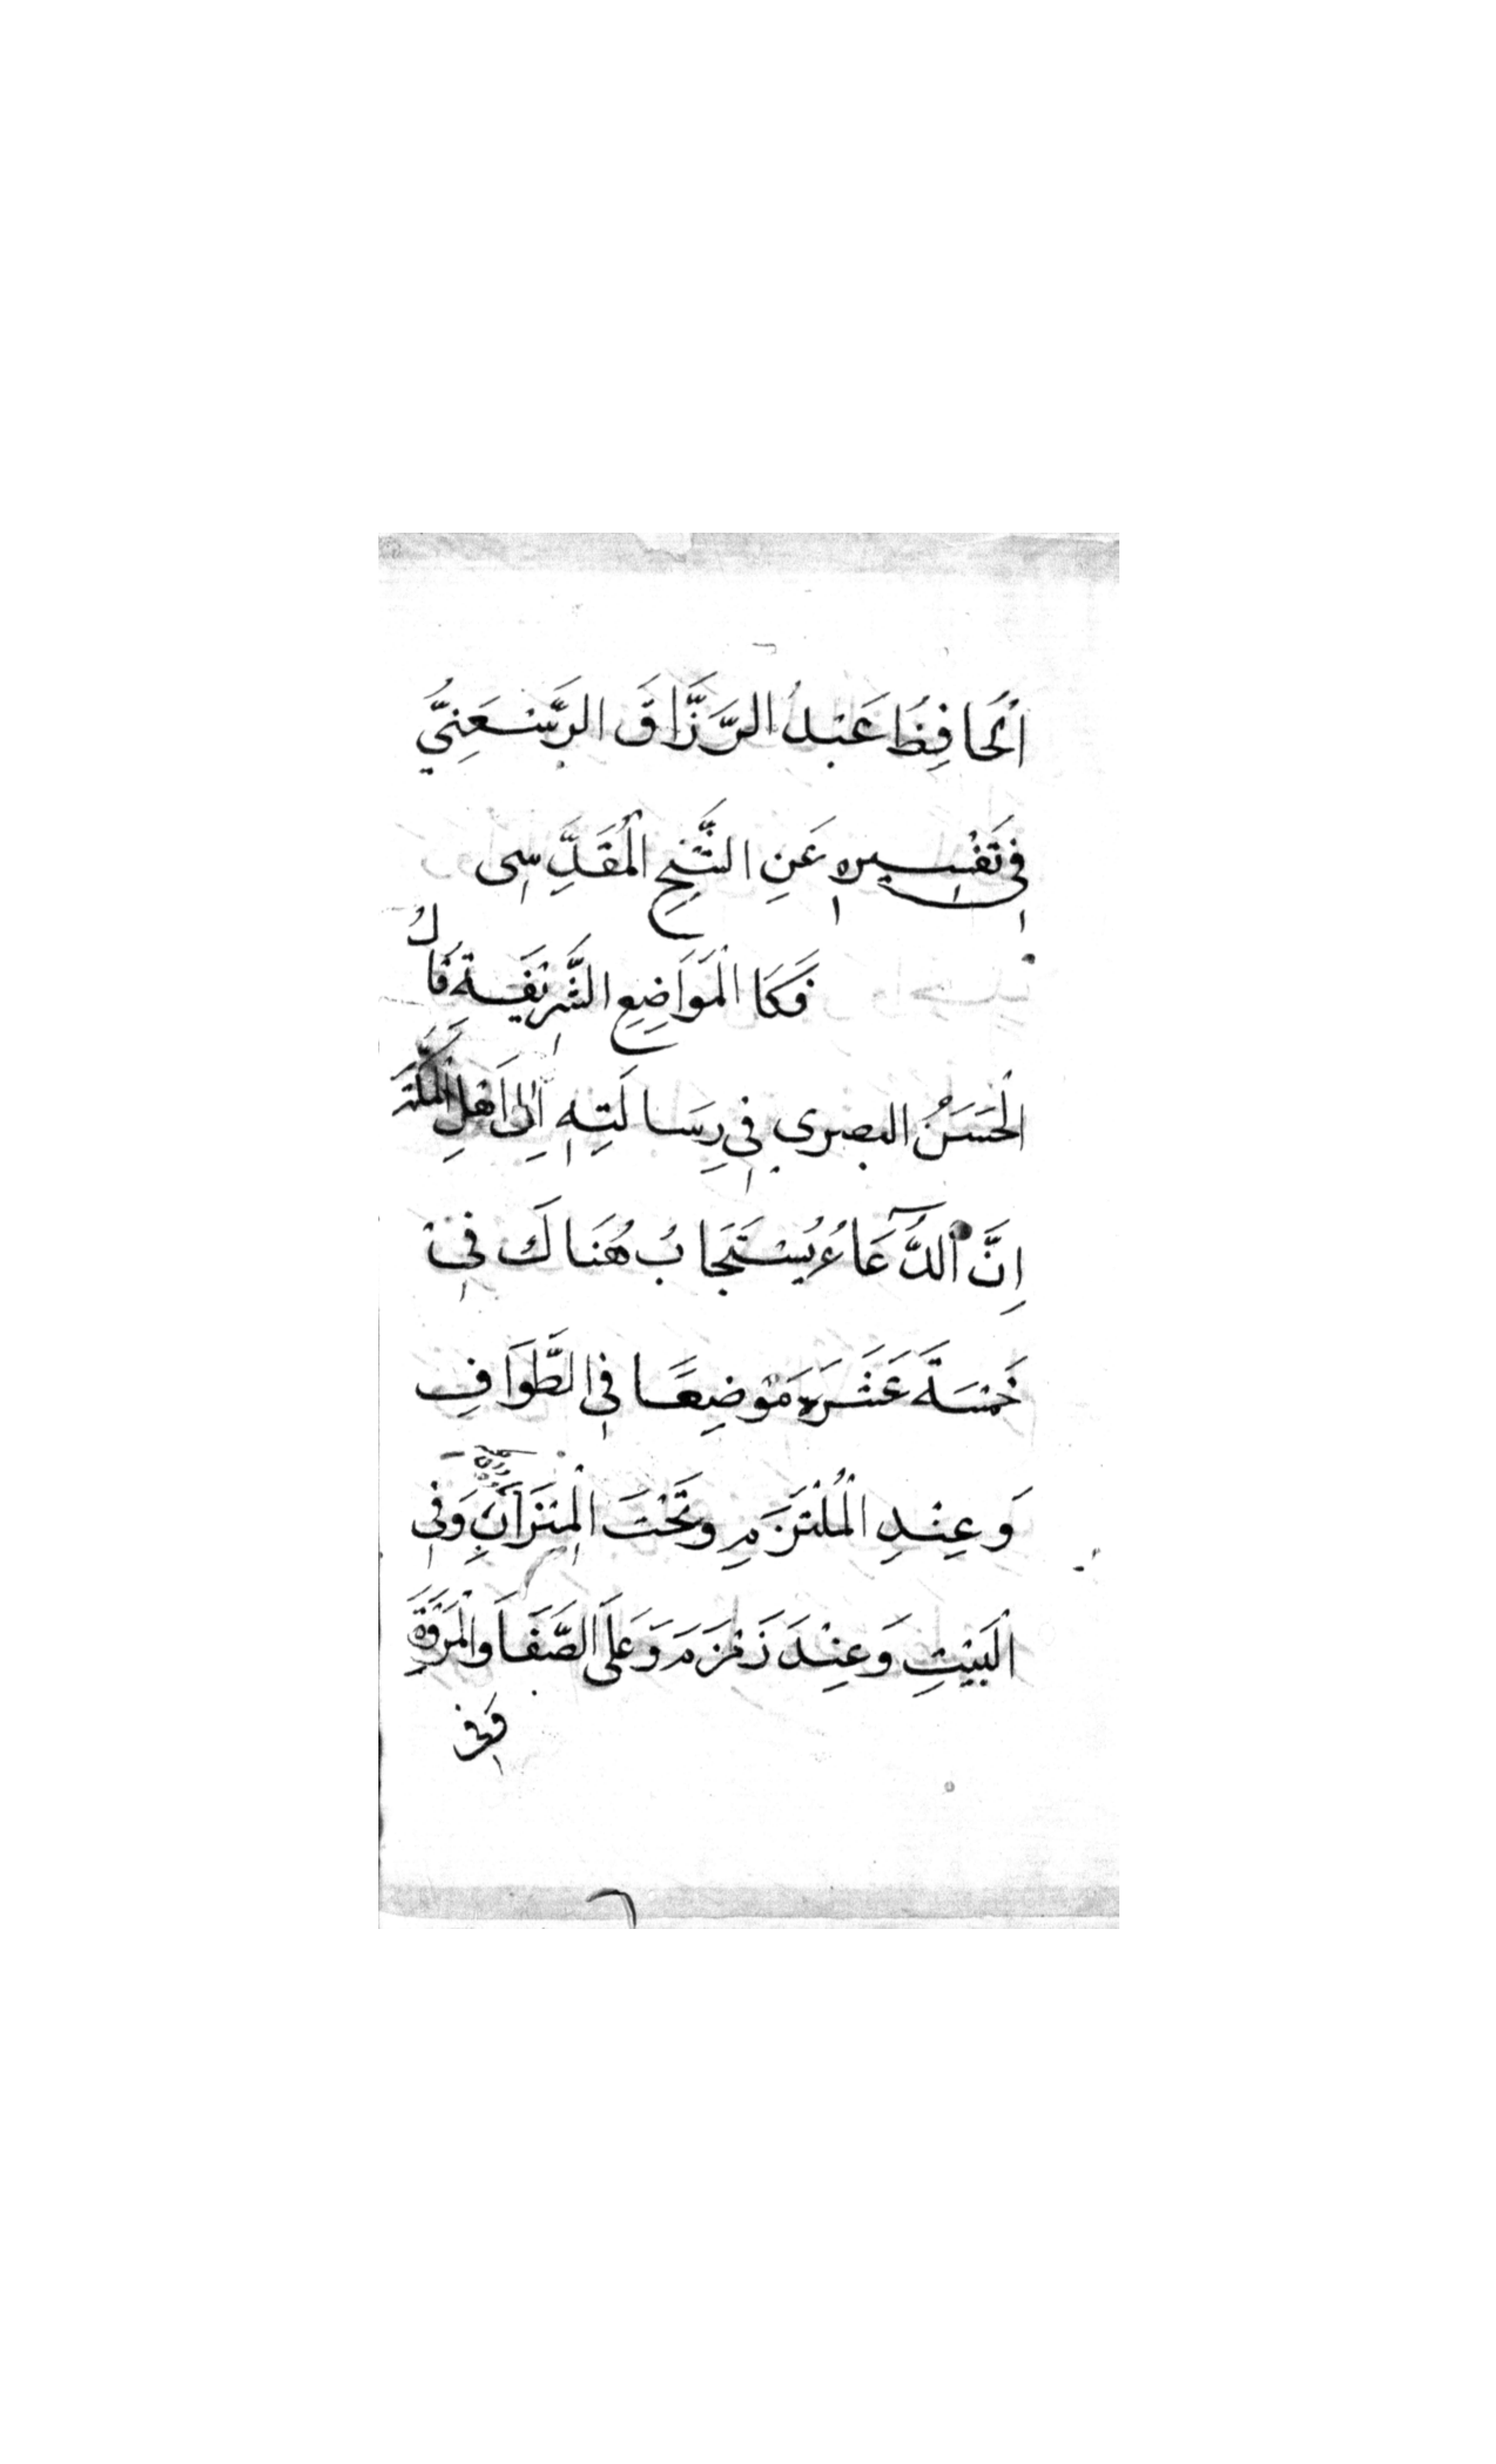 اَلْحَافِظُ عَبْدُ الرَّزَّاقَ الرَّسْعَنِيُّ
فِي تَفْسِيرِهِ عَنِ الشَّيْخِ الْمُقَدِّسِى
فَكَا الْمَوَاضِعِ الشَّرِيْفَةِ قَالُ
الْحَسَنُ البصري فِي رِسَالَتِهِ اِلَى اَهْلِ الْمَكَّةَ
اِنَّ اَلدُّعَآءُ يُسْتَجَابُ هُنَاكَ فِيْ
خَمْسَةَ عَشَرَةَ مَوْضِعًا فِي الطَّوَافِ
وَعِنْدِ الْمُلْتَزَمِ وَتَحْتَ الْمِيْزَابِ وَفِي
الْبَيْتِ وَعِنْدَ زَمْزَمَ وَعَلَى الصَّفَا وَالْمَرْوَةِ
وَفِي